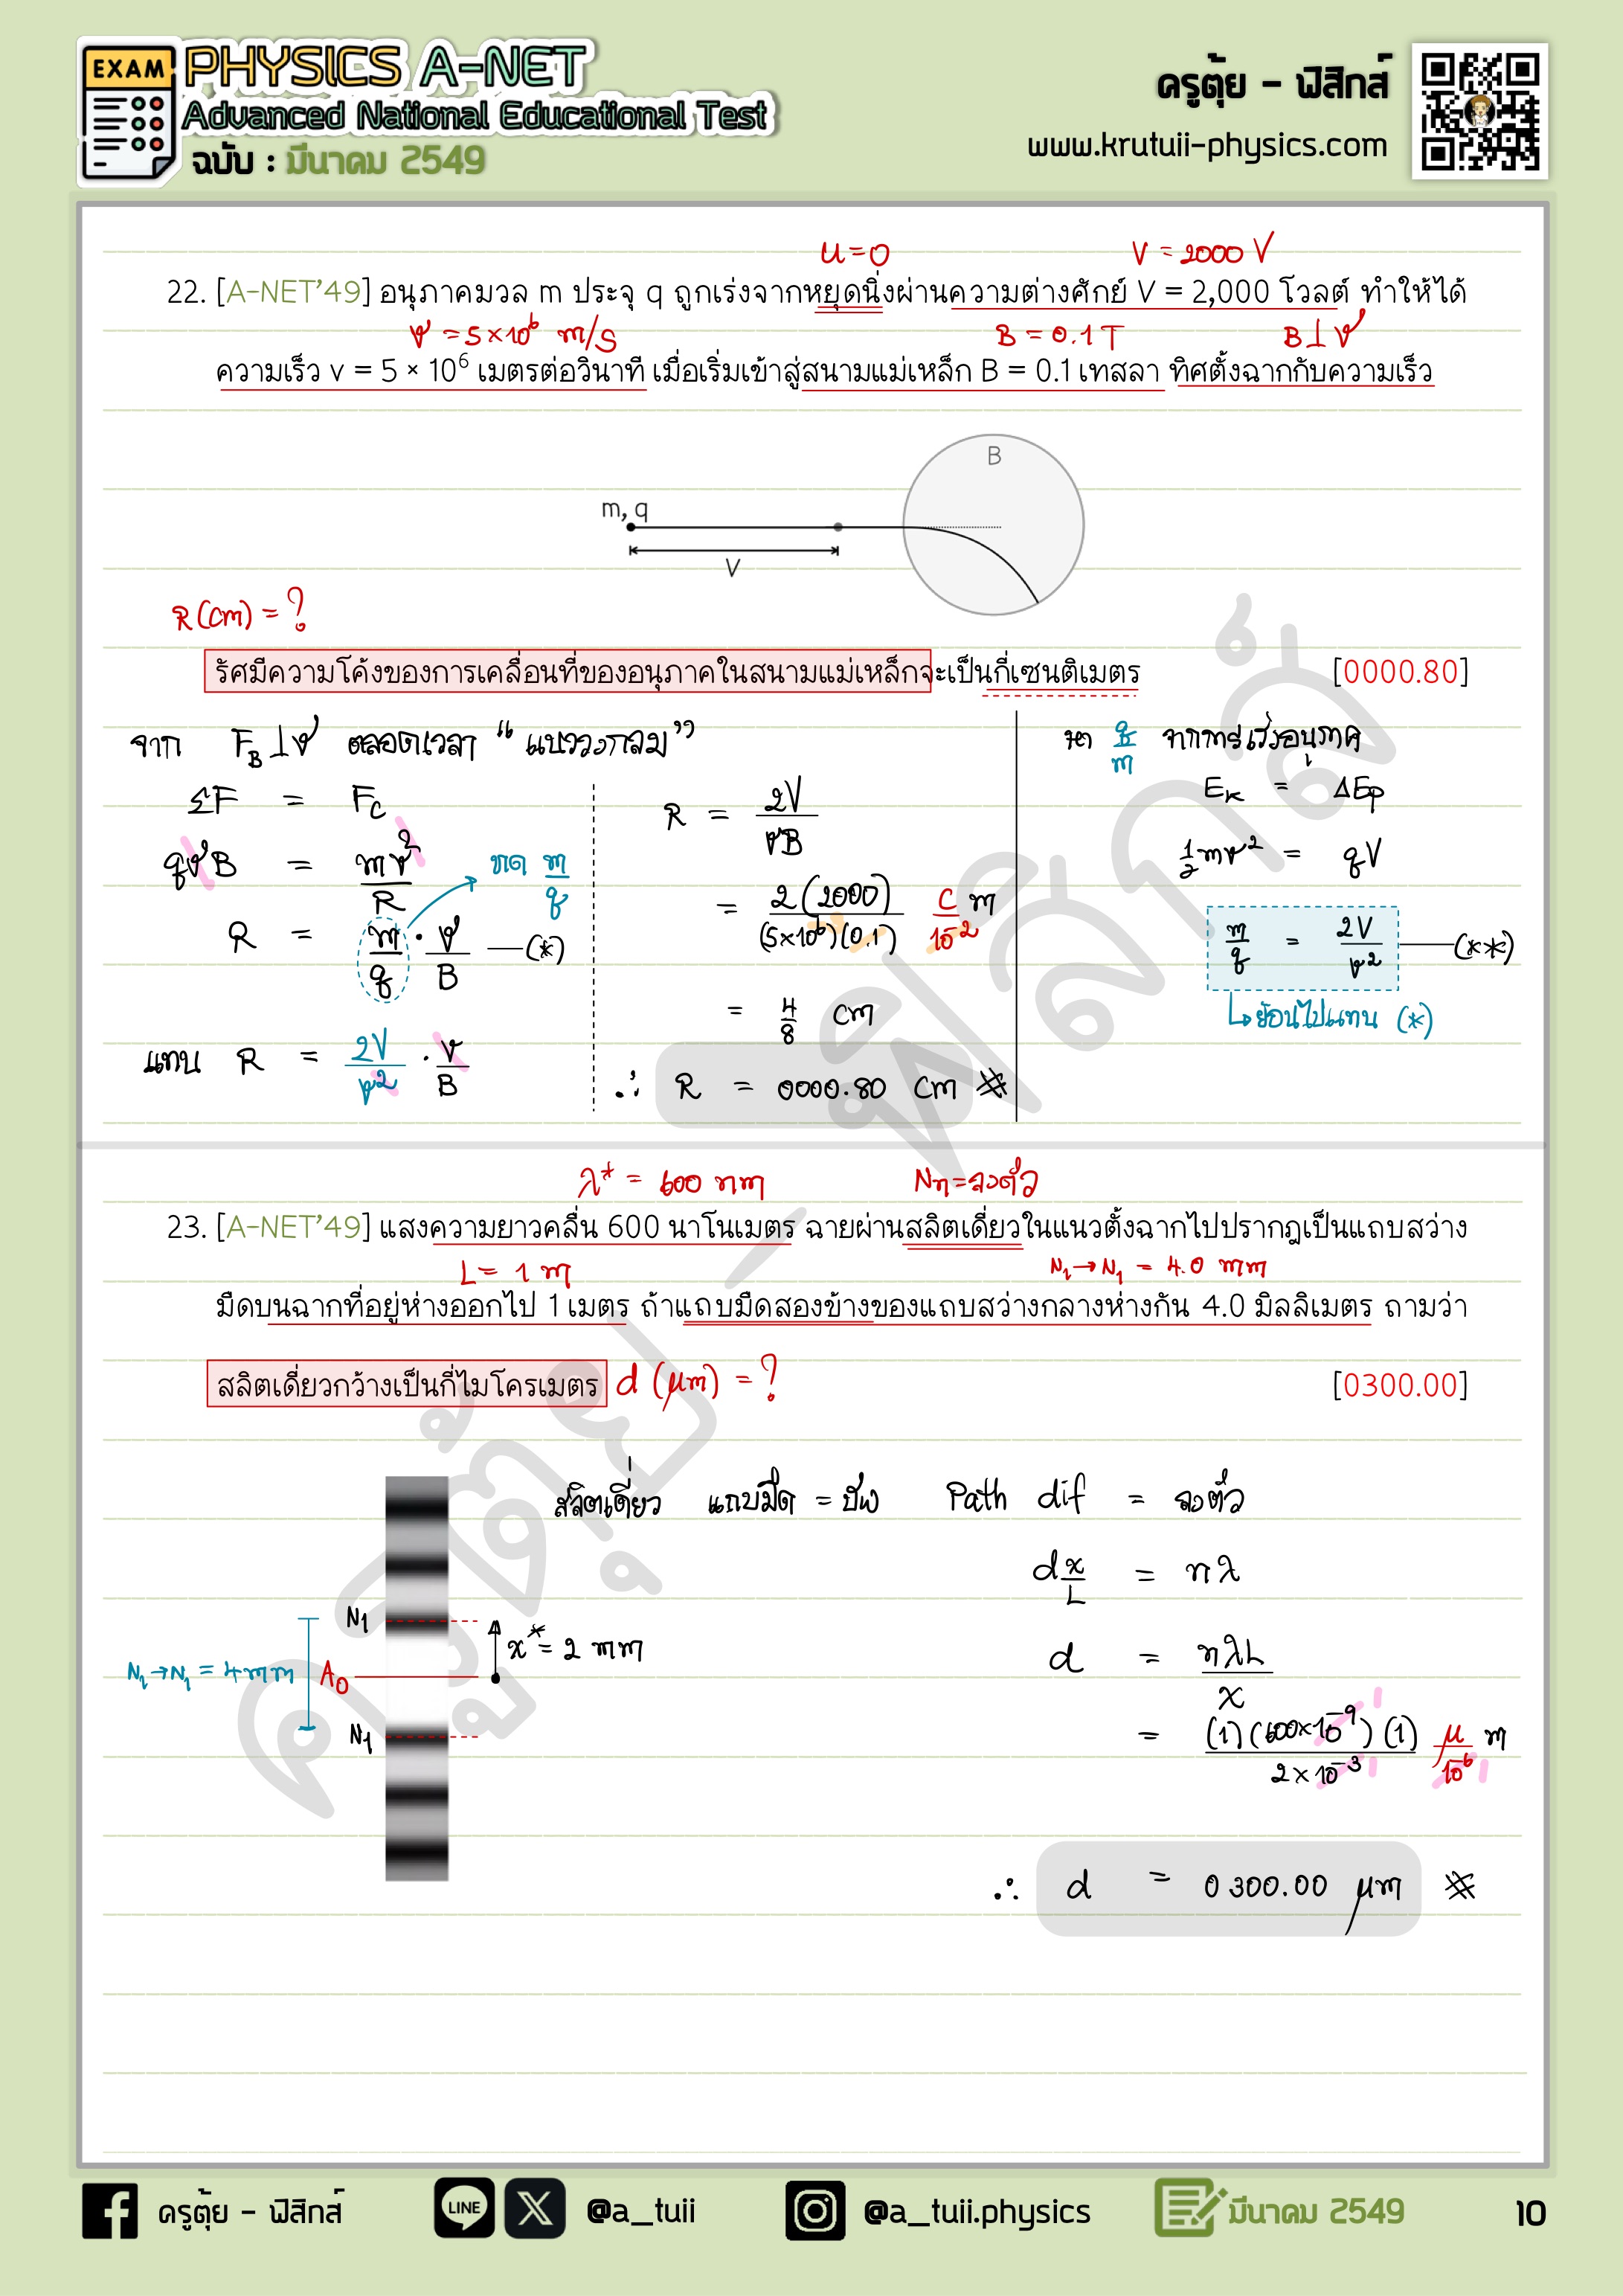 EXAM
PHYSICS A-NET
Advanced National Educational Test
ฉบับ : มีนาคม 2549
ครูตุ้ย - ฟิสิกส์
www.krutuii-physics.com
u = 0
V = 2000 V
22. [A-NET'49] อนุภาคมวล m ประจุ q ถูกเร่งจากหยุดนิ่งผ่านความต่างศักย์ V = 2,000 โวลต์ ทำให้ได้
v = 5×10⁶ m/s
B = 0.1 T
B⊥v
ความเร็ว v = 5 × 10⁶ เมตรต่อวินาที เมื่อเริ่มเข้าสู่สนามแม่เหล็ก B = 0.1 เทสลา ทิศตั้งฉากกับความเร็ว
B
m, q
V
R (cm) = ?
รัศมีความโค้งของการเคลื่อนที่ของอนุภาคในสนามแม่เหล็กจะเป็นกี่เซนติเมตร [0000.80]
จาก F_B ⊥ v ตลอดเวลา "แนววงกลม"
ΣF = F_C
qvB = mv²/R
หา m/q
R = m/q · v/B —(*)
แทน R = 2V/v² · v/B
R = 2V/vB
= 2(2000)/(5×10⁶)(0.1) c/10⁻² m
= 4/8 cm
∴ R = 0000.80 cm ※
หา q/m จากการเร่งอนุภาค
E_k = ΔEp
½mv² = qV
m/q = 2V/v² —(**)
↳ย้อนไปแทน (*)
λ* = 600 nm
Nn = ลงตัว
23. [A-NET'49] แสงความยาวคลื่น 600 นาโนเมตร ฉายผ่านสลิตเดี่ยวในแนวตั้งฉากไปปรากฏเป็นแถบสว่าง
L = 1 m
N₁→N₁ = 4.0 mm
มืดบนฉากที่อยู่ห่างออกไป 1 เมตร ถ้าแถบมืดสองข้างของแถบสว่างกลางห่างกัน 4.0 มิลลิเมตร ถามว่า
สลิตเดี่ยวกว้างเป็นกี่ไมโครเมตร d (μm) = ? [0300.00]
สลิตเดี่ยว แถบมืด = บัพ Path dif = ลงตัว
d x/L = nλ
N₁
x* = 2 mm
N₁→N₁ = 4 mm
A₀
N₁
d = nλL/x
= (1)(600×10⁻⁹)(1)/2×10⁻³ μ/10⁻⁶ m
∴ d = 0300.00 μm ※
ครูตุ้ย - ฟิสิกส์
ครูตุ้ย - ฟิสิกส์
LINE
@a_tuii
@a_tuii.physics
มีนาคม 2549
10